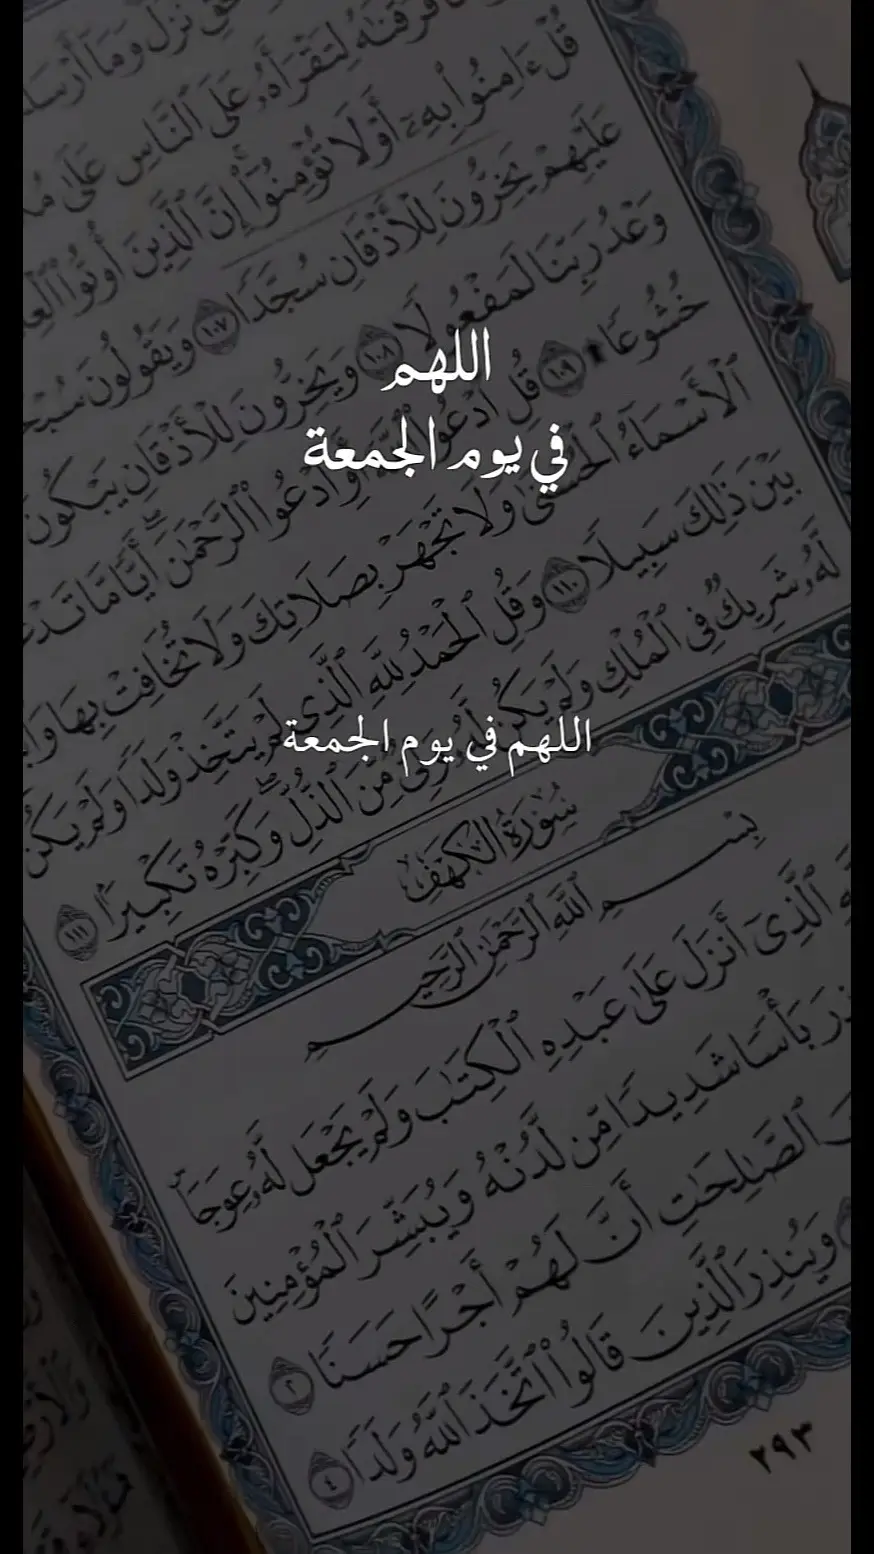 قُلْ ءَامِنُوا۟ بِهِۦٓ أَوْ لَا تُؤْمِنُوٓا۟ إِنَّ ٱلَّذِينَ أُوتُوا۟
عَلَيْهِمْ يَخِرُّونَ لِلْأَذْقَانِ سُجَّدًا ١٠٧ وَيَقُولُونَ
وَعْدُ رَبِّنَا لَمَفْعُولًا ١٠٨ وَيَخِرُّونَ لِلْأَذْقَانِ يَبْكُونَ
خُشُوعًا ١٠٩ قُلِ ٱدْعُوا۟ أَوِ ٱدْعُوا۟ ٱلرَّحْمَٰنَ أَيًّا مَّا
ٱلْأَسْمَآءُ ٱلْحُسْنَىٰ وَلَا تَجْهَرْ بِصَلَاتِكَ وَلَا تُخَافِتْ بِهَا
بَيْنَ ذَٰلِكَ سَبِيلًا ١١٠ وَقُلِ ٱلْحَمْدُ لِلَّهِ ٱلَّذِى لَمْ يَتَّخِذْ وَلَدًا وَلَمْ يَكُن
لَّهُۥ شَرِيكٌ فِى ٱلْمُلْكِ وَلَمْ يَكُن مِّنَ ٱلذُّلِّ وَكَبِّرْهُ تَكْبِيرًۢا ١١١
اللهم
في يوم الجمعة
اللهم في يوم الجمعة
سُورَةُ الكَهْفِ
بِسْمِ ٱللَّهِ ٱلرَّحْمَٰنِ ٱلرَّحِيمِ
ٱلَّذِىٓ أَنزَلَ عَلَىٰ عَبْدِهِ ٱلْكِتَٰبَ وَلَمْ يَجْعَل لَّهُۥ عِوَجَاۜ
بَأْسًا شَدِيدًا مِّن لَّدُنْهُ وَيُبَشِّرَ ٱلْمُؤْمِنِينَ
ٱلصَّٰلِحَٰتِ أَنَّ لَهُمْ أَجْرًا حَسَنًا ٢
وَيُنذِرَ ٱلَّذِينَ قَالُوا۟ ٱتَّخَذَ ٱللَّهُ وَلَدًا ٤
٢٩٣